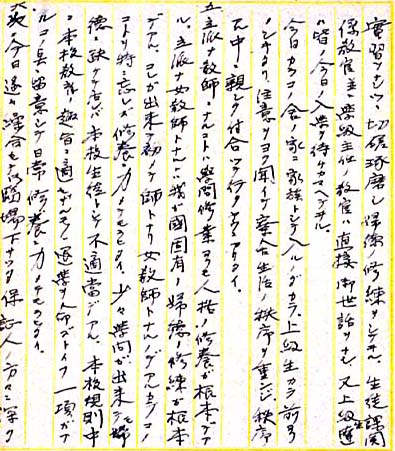 實習ヲナシツヽ切磋琢磨シ婦徳ノ修練ヲシテ
係教官並學級主任ノ教官ハ直接御世話ヲナシ又上級
ハ皆今日ノ入學ヲ待チカマヘテヰル
今日カラコノ舎ノ家ニ家族トシテ入ルノダカラ上級生カラ
注意ヲヨク聞イテ寮舎生活ノ秩序ヲ重ンジ秩序
ノ中ニ親シク付合ツテ行クヤウアリタイ
五、立派ナ教師トナルニハ學問修業ヨリモ人格ノ修養ガ根本デア
ル、立派ナ女教師トナルニハ我ガ國固有ノ婦徳ノ修練ガ根本
デアル、コレガ出来テ初メテ師トナリ女教師トナルノデアルカラコノ
コトヲ特ニ忘レズ修養ニ力メテモラヒタイ、少々學問ガ出来テモ婦
徳ニ缺ケテ居レバ本校生徒トシテ不適當デアル、本校規則中
ニ本校教育ノ趣旨ニ適セザルモノ退學ヲ命ズトイフ一項ガア
ルコノ点ニ留意シテ日常修養ニ力メテモラヒタイ
六、次ニ今日遠イ
場下サツタ保証人ノ方々ニ深ク